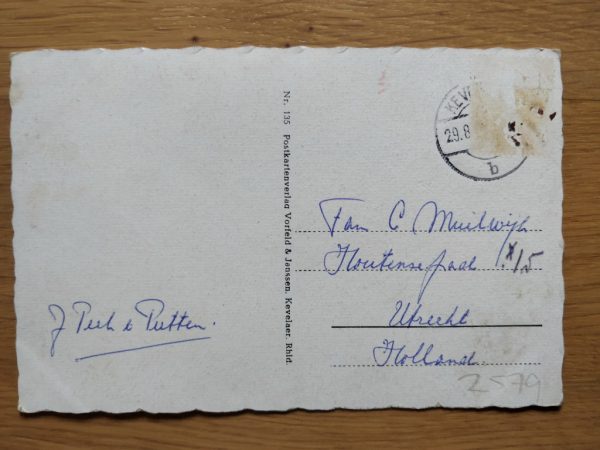 KEVE
29.8
b
Nr. 135 Postkartenverlag Vorfeld & Janssen, Kevelaer, Rhld.
Fam C Muilwijk
Houtensepad
Utrecht
Holland
J Peek v Putten.
2579